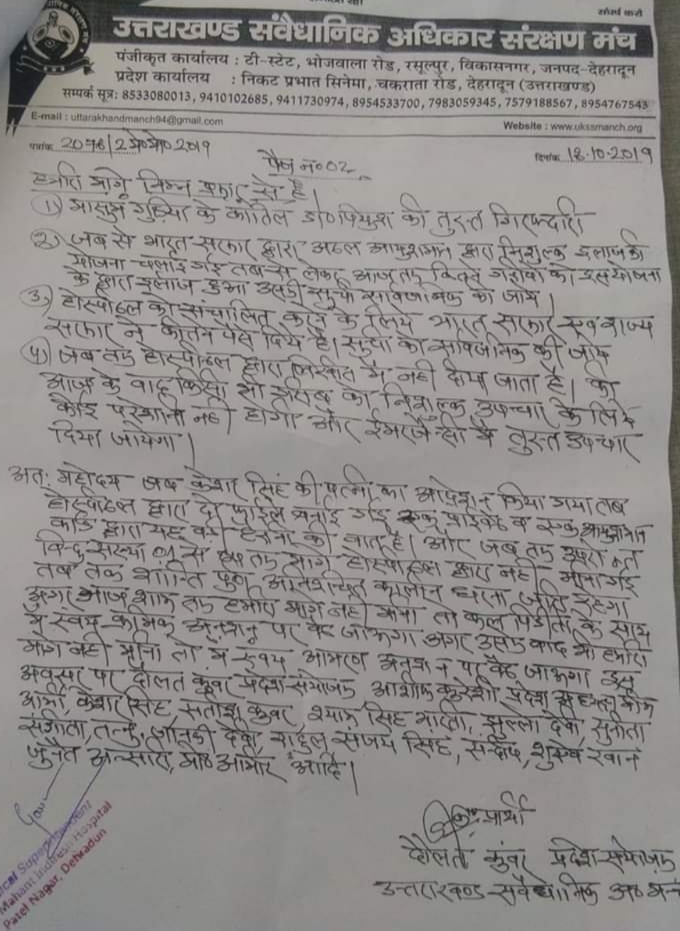 संघर्ष करो
उत्तराखण्ड संवैधानिक अधिकार संरक्षण मंच
पंजीकृत कार्यालय : टी-स्टेट, भोजवाला रोड, रसूलपुर, विकासनगर, जनपद-देहरादून
प्रदेश कार्यालय : निकट प्रभात सिनेमा, चकराता रोड, देहरादून (उत्तराखण्ड)
सम्पर्क सूत्र: 8533080013, 9410102685, 9411730974, 8954533700, 7983059345, 7579188567, 8954767543
E-mail : uttarakhandmanch94@gmail.com
Website : www.ukssmanch.org
पत्रांक 2019
दिनांक 18.10-2019
पैज न० 02
हमारी मांगे निम्न प्रकार से है।
① मासूम गुड़िया के कातिल डा० पियुश की तुरन्त गिरफ्दारी
2. जब से भारत सरकार द्वारा अटल आयुशमान द्वारा निशुल्क इलाज की
योजना चलाई गई तब से लेकर आज तक कितने गरीबो को इस योजना
के द्वारा इलाज हुआ उसकी सूची सार्वजनिक की जाये।
3. होस्पीटल को संचालित करने के लिये भारत सरकार एव राज्य
सरकार ने कितने पैसे दिये है। सूची को सार्वजनिक की जाये
4) जब तक होस्पीटल द्वारा लिखित मे नही दीया जाता है। की
आज के बाद किसी भी गरीब को निशुल्क उपचार के लिये
कोई परेशानी नही होगी और ईमरजैन्सी मे तुरन्त उपचार
दिया जायेगा।
अतः महोदय जब केशर सिंह की पत्नी का आप्रेशन किया गया तब
होस्पीटल द्वारा दो फाईल बनाई गई एक प्राईवेट व एक आयुशमान
कार्ड द्वारा यह बड़ी हैरानी की बात है। और जब तक उपरोक्त
बिन्दु संख्या 01 से तक मांगे होस्पीटल द्वारा नही मानी गई
तब तक शान्ति पूर्ण अनिश्चित कालीन धरना जारी रहेगा
अगर आज शाम तक हमारी मांगे नही मानी तो कल पिडीतो के साथ
मे स्वंय क्रमिक अनशन पर बैठ जाऊगा अगर उसके बाद भी हमारी
मांगे नही मानी तो मे स्वयं आमरण अनशन पर बैठ जाऊगा इस
अवसर पर दौलत कुंवर प्रदेश संयोजक आशीफ कुरेशी प्रदेश
केशर सिंह, सतीश कुंवर, श्याम सिंह भारती, झुल्ला देवी, सुनीता
संगीता, तन्नु, जानकी देवी, राहुल संजय सिंह, सन्दीप, शुरूख खान
जुनैत अन्सारी, मो० आमीर आदि।
प्रार्थी
दौलत कुंवर प्रदेश संयोजक
उत्तराखण्ड संवैधानिक
Medical Superintendent
Mahant Indiresh Hospital
Patel Nagar, Dehradun